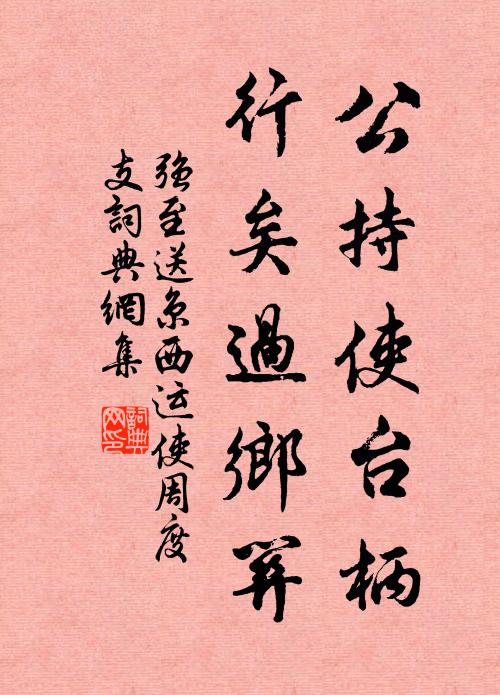 公持使台柄
行矣過鄉
強至送京西运使周度
支詞典網集
詞典
网印